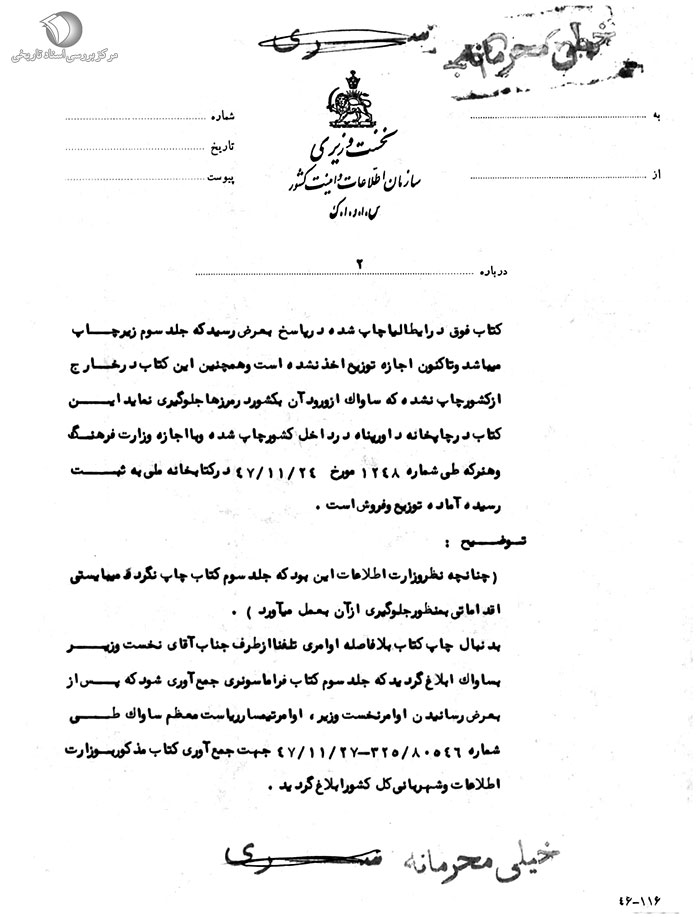 مرکز بررسی اسناد تاریخی
سری
خیلی محرمانه
به
از
نخست وزیری
سازمان اطلاعات و امنیت کشور
س.ا.و.ا.ک
شماره
تاریخ
پیوست
درباره ۲
کتاب فوق در ایطالیا چاپ شده در پاسخ بعرض رسید که جلد سوم زیر چاپ
میباشد و تاکنون اجازه توزیع اخذ نشده است و همچنین این کتاب در خارج
از کشور چاپ نشده که ساواک از ورود آن بکشور در مرزها جلوگیری نماید این
کتاب در چاپخانه داورپناه در داخل کشور چاپ شده و با اجازه وزارت فرهنگ
و هنر که طی شماره ۱۲۴۸ مورخ ۴۷/۱۱/۲۴ در کتابخانه ملی به ثبت
رسیده آماده توزیع و فروش است .
توضیح :
(چنانچه نظر وزارت اطلاعات این بود که جلد سوم کتاب چاپ نگردد میبایستی
اقداماتی بمنظور جلوگیری از آن بعمل میآورد ) .
بدنبال چاپ کتاب بلافاصله اوامری تلفنا از طرف جناب آقای نخست وزیر
بساواک ابلاغ گردید که جلد سوم کتاب فراماسونری جمع آوری شود که پس از
بعرض رسانیدن اوامر نخست وزیر ، اوامر تیمسار ریاست معظم ساواک طی
شماره ۳۲۵/۸۰۵۴۶-۴۷/۱۱/۲۷ جهت جمع آوری کتاب مذکور بوزارت
اطلاعات و شهربانی کل کشور ابلاغ گردید .
خیلی محرمانه
سری
۴۶-۱۱۶